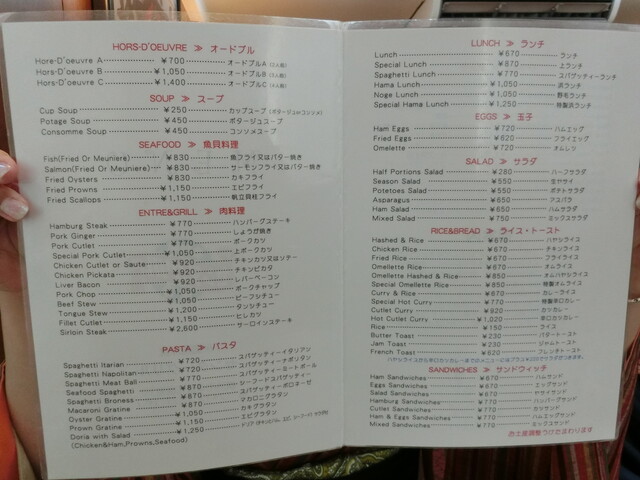 HORS-D'OEUVRE ≫ オードブル
Hors-D'oeuvre A ¥700 オードブルA (2人前)
Hors-D'oeuvre B ¥1,050 オードブルB (3人前)
Hors-D'oeuvre C ¥1,400 オードブルC (4人前)
SOUP ≫ スープ
Cup Soup ¥250 カップスープ (ポタージュorコンソメ)
Potage Soup ¥450 ポタージュスープ
Consomme Soup ¥450 コンソメスープ
SEAFOOD ≫ 魚貝料理
Fish(Fried Or Meuniere) ¥830 魚フライ又はバター焼き
Salmon(Fried Or Meuniere) ¥830 サーモンフライ又はバター焼き
Fried Oysters ¥830 カキフライ
Fried Prowns ¥1,150 エビフライ
Fried Scallops ¥1,150 帆立貝柱フライ
ENTRE&GRILL ≫ 肉料理
Hamburg Steak ¥770 ハンバーグステーキ
Pork Ginger ¥770 しょうが焼き
Pork Cutlet ¥770 ポークカツ
Special Pork Cutlet ¥1,050 上ポークカツ
Chicken Cutlet or Saute ¥920 チキンカツ又はソテー
Chicken Pickata ¥920 チキンピカタ
Liver Bacon ¥920 レバーベーコン
Pork Chop ¥1,050 ポークチャップ
Beef Stew ¥1,200 ビーフシチュー
Tongue Stew ¥1,200 タンシチュー
Fillet Cutlet ¥1,150 ヒレカツ
Sirloin Steak ¥2,600 サーロインステーキ
PASTA ≫ パスタ
Spaghetti Itarian ¥720 スパゲッティーイタリアン
Spaghetti Napolitan ¥720 スパゲッティーナポリタン
Spaghetti Meat Ball ¥770 スパゲッティーミートボール
Seafood Spaghetti ¥850 シーフードスパゲッティー
Spaghetti Broness ¥870 スパゲッティーボロネーゼ
Macaroni Gratine ¥870 マカロニグラタン
Oyster Gratine ¥1,050 カキグラタン
Prown Gratine ¥1,150 エビグラタン
Doria with Salad ¥1,250 ドリア
(Chicken&Ham,Prowns,Seafood)
LUNCH ≫ ランチ
Lunch ¥670 ランチ
Special Lunch ¥870 上ランチ
Spaghetti Lunch ¥770 スパゲッティーランチ
Hama Lunch ¥1,050 浜ランチ
Noge Lunch ¥1,050 野毛ランチ
Special Hama Lunch ¥1,250 特製浜ランチ
EGGS ≫ 玉子
Ham Eggs ¥720 ハムエッグ
Fried Eggs ¥620 フライエッグ
Omelette ¥720 オムレツ
SALAD ≫ サラダ
Half Portions Salad ¥280 ハーフサラダ
Season Salad ¥550 生ヤサイ
Potetoes Salad ¥550 ポテトサラダ
Asparagus ¥650 アスパラ
Ham Salad ¥650 ハムサラダ
Mixed Salad ¥750 ミックスサラダ
RICE&BREAD ≫ ライス・トースト
Hashed & Rice ¥670 ハヤシライス
Chicken Rice ¥670 チキンライス
Fried Rice ¥670 フライライス
Omellette Rice ¥670 オムライス
Omellette Hashed & Rice ¥850 オムハヤシライス
Special Omellette Rice ¥850 特製オムライス
Curry & Rice ¥670 カレーライス
Special Hot Curry ¥770 特製辛口カレー
Cutlet Curry ¥920 カツカレー
Hot Cutlet Curry ¥1,020 辛口カツカレー
Rice ¥150 ライス
Butter Toast ¥230 バタートースト
Jam Toast ¥230 ジャムトースト
French Toast ¥620 フレンチトースト
ハヤシライスから辛口カツカレーまでのメニューの
SANDWICHES ≫ サンドウィッチ
Ham Sandwiches ¥670 ハムサンド
Eggs Sandwiches ¥670 エッグサンド
Salad Sandwiches ¥670 ヤサイサンド
Hamburg Sandwiches ¥770 ハンバーグサンド
Cutlet Sandwiches ¥770 カツサンド
Ham & Eggs Sandwiches ¥770 ハムエッグサンド
Mixed Sandwiches ¥770 ミックスサンド
お土産調整うけたまわります